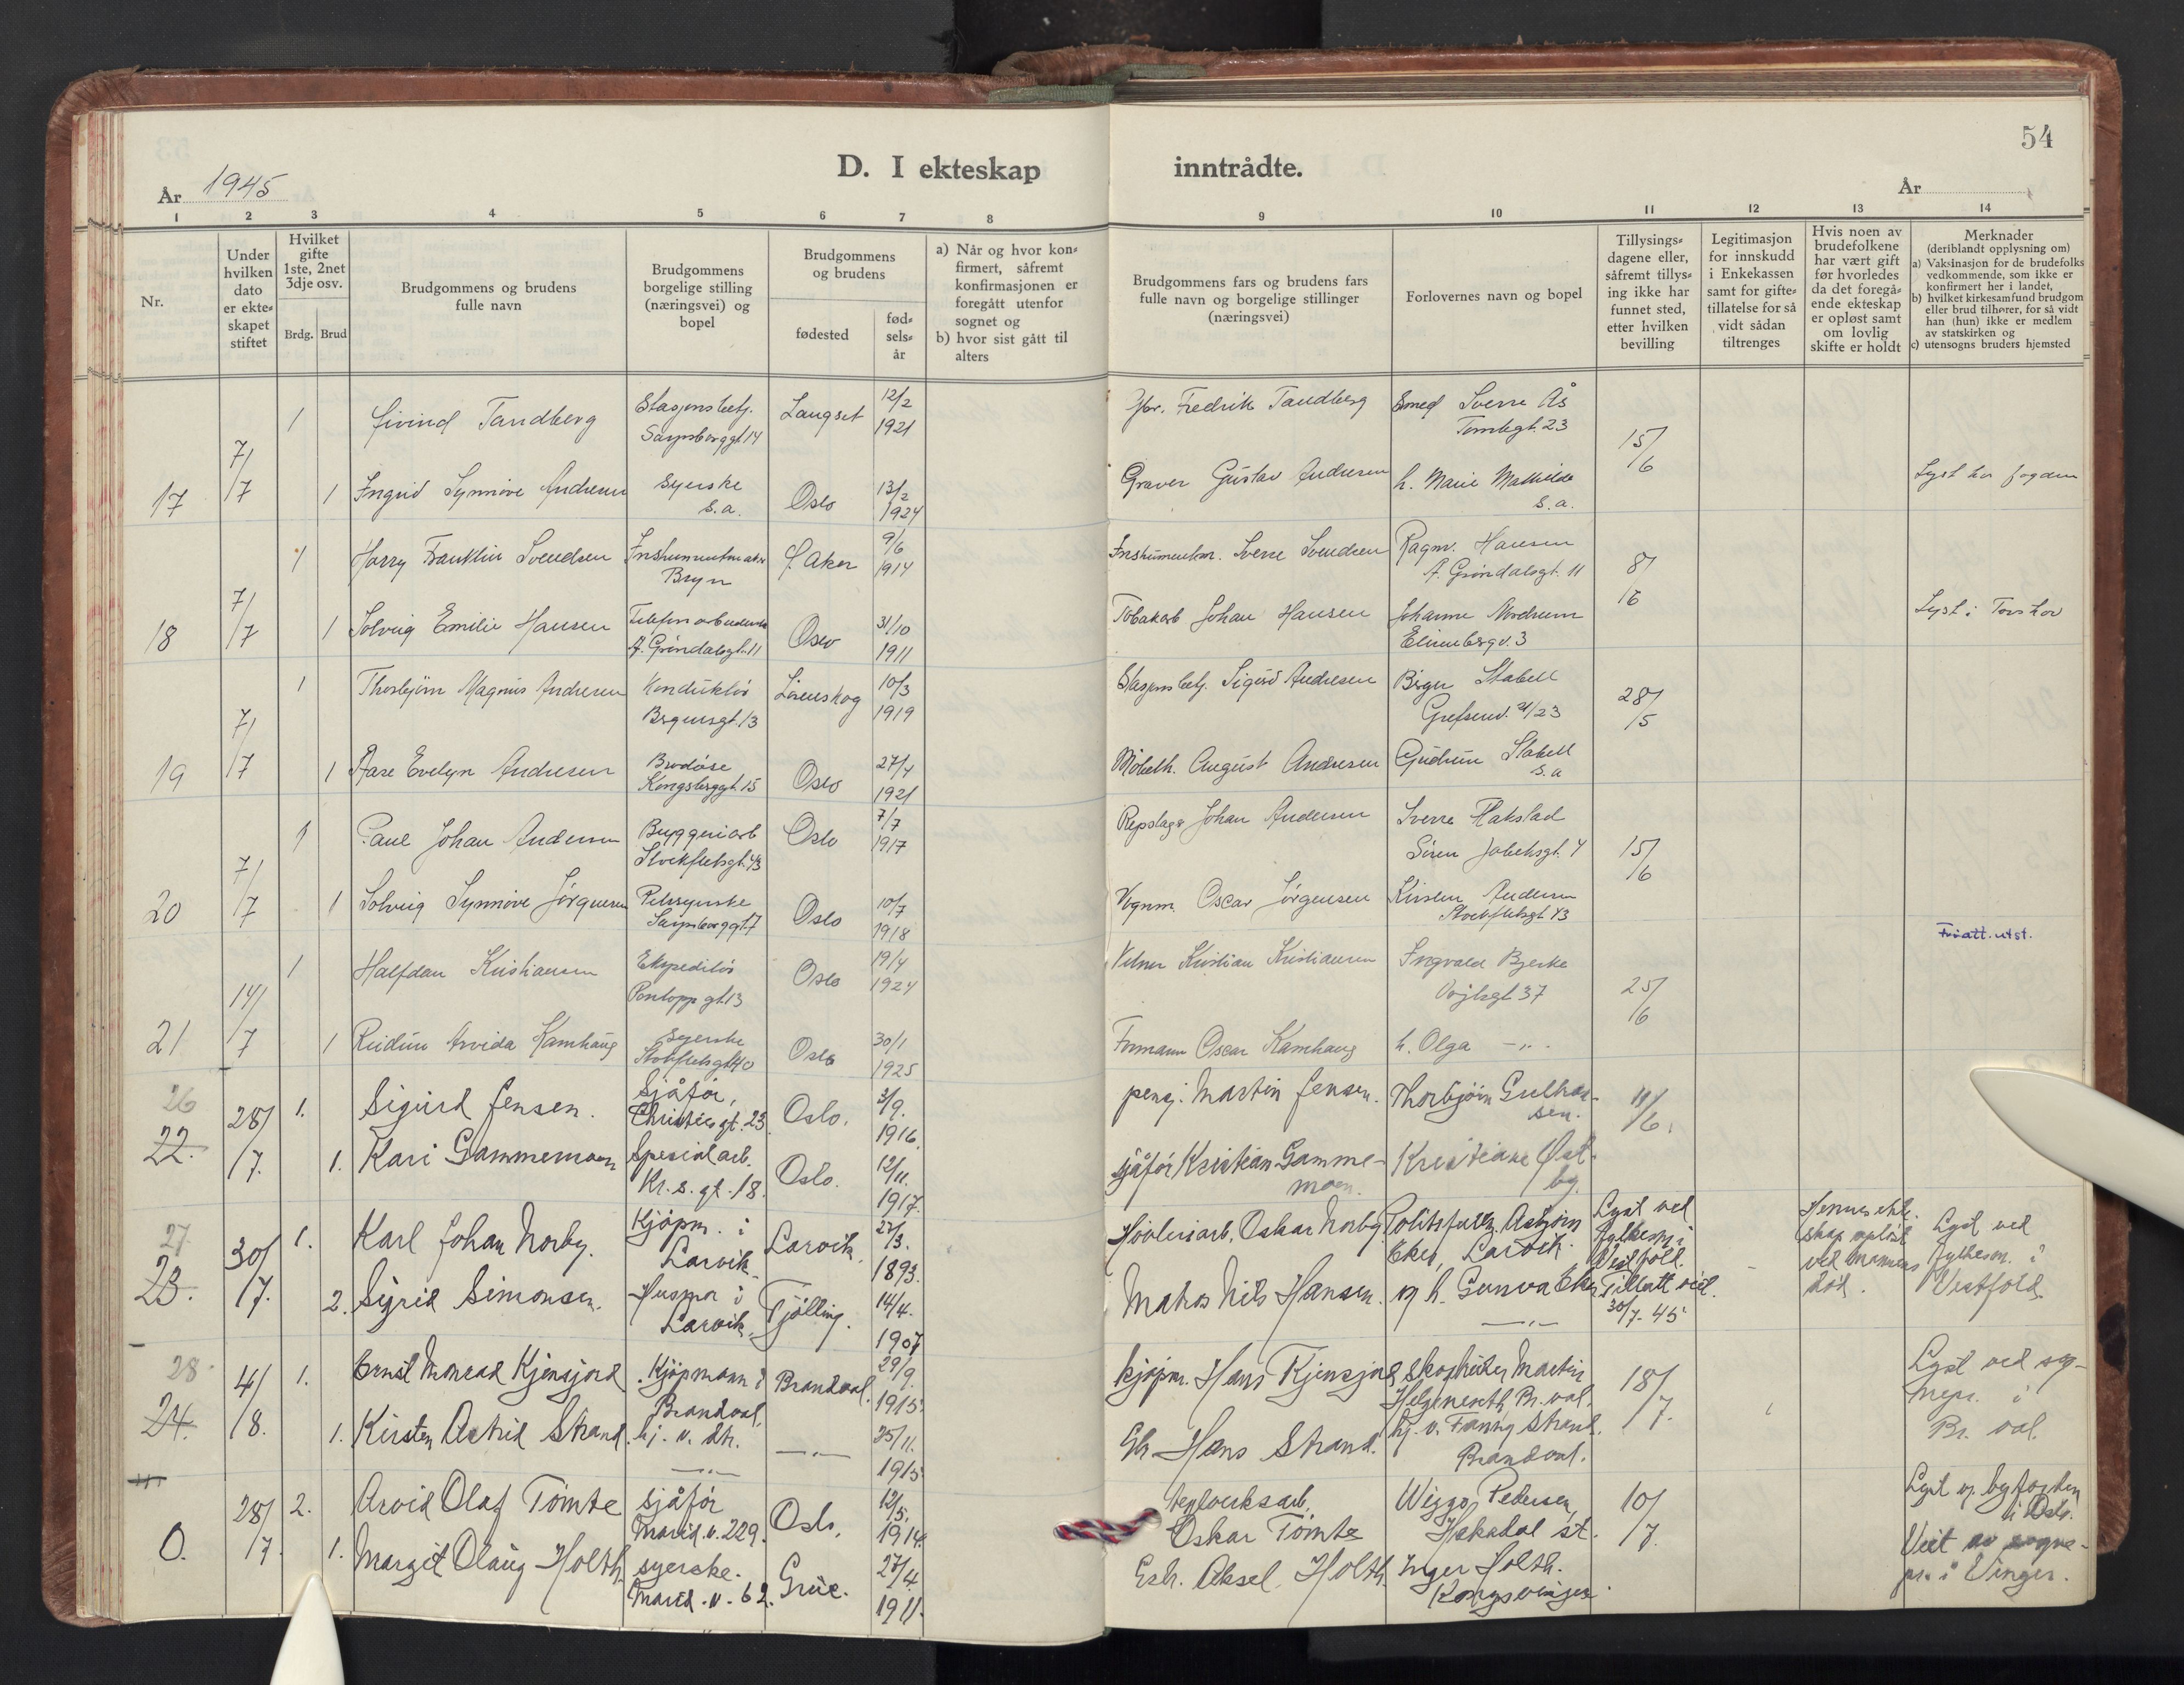 54
D. I ekteskap inntrådte.
År 1945
År
1 2 3 4 5 6 7 8 9 10 11 12 13 14
Nr.
Under hvilken dato er ekte-skapet stiftet
Hvilket gifte 1ste, 2net 3dje osv.
Brdg. Brud
Brudgommens og brudens fulle navn
Brudgommens borgelige stilling (næringsvei) og bopel
Brudgommens og brudens
fødested
fød-sels-år
a) Når og hvor kon-firmert, såfremt konfirmasjonen er foregått utenfor sognet og
b) hvor sist gått til alters
Brudgommens fars og brudens fars fulle navn og borgelige stillinger (næringsvei)
Forlovernes navn og bopel
Tillysings-dagene eller, såfremt tillys-ing ikke har funnet sted, etter hvilken bevilling
Legitimasjon for innskudd i Enkekassen samt for gifte-tillatelse for så vidt sådan tiltrenges
Hvis noen av brudefolkene har vært gift før hvorledes da det foregå-ende ekteskap er opløst samt om lovlig skifte er holdt
Merknader (deriblandt opplysning om)
a) Vaksinasjon for de brudefolks vedkommende, som ikke er konfirmert her i landet,
b) hvilket kirkesamfund brudgom eller brud tilhører, for så vidt han (hun) ikke er medlem av statskirken og
c) utensogns bruders hjemsted
17 7/7 1 Eivind Tandberg Stasjonsbetj. Sarpsborggt 14 Langset 12/2 1921 Fredrik Tandberg Smed Sverre Ås 23 15/6
1 Ingrid Synnøve Andresen Syerske s.a. Oslo 13/2 1924 Graver Gustav Andresen h. Marie Mathilde s.a. Lyst hos fogden
18 7/7 1 Harry Franklin Svendsen Instrumentmaker Bryn Ø. Aker 9/6 1914 Instrumentm. Sverre Svendsen Ragnv. Hansen A. Grøndalsgt. 11 8/6
1 Solveig Emilie Hansen Telefonarbeiderske A. Grøndalsgt. 11 Oslo 31/10 1911 Tobakarb Johan Hansen Johanne Nordrum 3 Lyst i Torshov
19 7/7 1 Thorbjørn Magnus Andresen Konduktør 13 Lørenskog 10/3 1919 Stasjonsbetj. Sigurd Andresen Birger Stabell Grefsenv. 21/23 28/5
1 Aase Evelyn Andresen Brodøse Kongsberggt. 15 Oslo 27/4 1921 Møbelh. August Andresen Gudrun Stabell s.a
20 7/7 1 Paul Johan Andersen Bryggeriarb Stockfletsgt. 43 Oslo 7/7 1917 Repslager Johan Andersen Sverre Hakstad Søren Jaabeksgt. 4 15/6
1 Solveig Synnøve Jørgensen Pelssyerske Sarpsborggt 7 Oslo 10/7 1918 Vognm. Oscar Jørgensen Kirsten Andersen Stockfletsgt 43
Friatt. utst.
21 14/7 1 Halfdan Kristiansen Ekspeditør Pontoppgt. 13 Oslo 19/4 1924 Kristian Kristiansen Ingvald Bjerke 37 25/6
1 Reidun Arvida Kamhaug Syerske Stokfletsgt 40 Oslo 30/1 1925 Formann Oscar Kamhaug h. Olga — " —
26 22. 28/7. 1. Sigurd Jensen. Sjåfør, Christiesgt. 23. Oslo. 3/9. 1916. pensj. Martin Jensen. Thorbjørn Gulhaksen. 11/6.
1. Kari Gammemoen Spesialarb. Kr.s.gt. 18. Oslo. 12/11. 1917. sjåfør Kristian Gammemoen. Kristiane Østby.
27 23. 30/7. 1. Karl Johan Norby. Kjøpm. i Larvik. Larvik. 27/3. 1893. Høvleriarb. Oskar Norby. Politifullm. Asbjørn Eker, Larvik. Lyst ved fylkesm. i Vestfold. Hennes ekteskap opløst ved mannens død. Lyst ved fylkesm. i Vestfold.
2. Sigrid Simonsen. Husmor i Larvik. Tjølling. 14/4. 1907 Matros Nils Hansen. og h. Gunva Eker — " — Tillatt vied. 30/7-45
28 24. 4/8. 1. Ernst Monrad Kjensjord Kjøpmann i Brandval. Brandval. 29/9. 1915. kjøpm. Hans Kjensjord, Martin Helgeneseth, Br.val. 18/7. Lyst ved sognepr. i Br. val.
1. Kirsten Astrid Strand. hj. v. dtr. — " — — " — 25/11. 1915 Gbr Hans Strand. hj. v. Fanny Strand. Brandval.
0. 28/7. 2. Arvid Olaf Tømte sjåfør Marid.v. 229. Oslo. 12/5. 1914. teglverksarb. Oskar Tømte Wiggo Pedersen, Hakadal st. 10/7. Lyst v. byfogden i Oslo.
1. Margit Olaug Holth. syerske. Marid.v. 62. Grue. 27/4. 1911. Gbr. Aksel Holth. Inger Holth. Kongsvinger. Viet av sognepr. i Vinger.